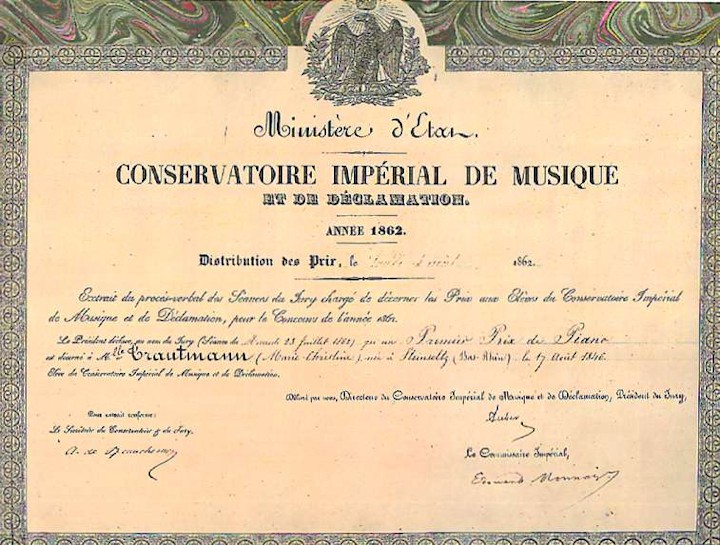 Ministère d'Etat.
CONSERVATOIRE IMPÉRIAL DE MUSIQUE
ET DE DÉCLAMATION.
ANNÉE 1862.
Distribution des Prix, le 1862.
Extrait du procès-verbal des Séances du Jury chargé de décerner les Prix aux Elèves du Conservatoire Impérial
de Musique et de Déclamation, pour le Concours de l'année 1862.
Le Président déclare, au nom du Jury (Séance du 23 Juillet 1862) qu'un Premier Prix de Piano
est décerné à Mlle Trautmann (Marie Christine), née à (Bas-Rhin) le 17 Août 1846
Elève du Conservatoire Impérial de Musique et de Déclamation.
Délivré par nous, Directeur du Conservatoire Impérial de Musique et de Déclamation, Président du Jury,
Pour extrait conforme:
Auber
Le Secrétaire du Conservatoire & du Jury,
Le Commissaire Impérial,
A. de Beauchesne
Edouard Monnais